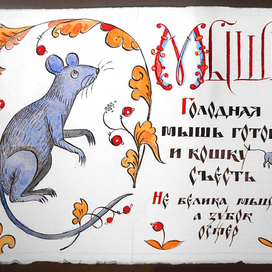 Мышь
Голодная
мышь готова
и кошку
съесть
Не велика мышь,
а зубок
остер